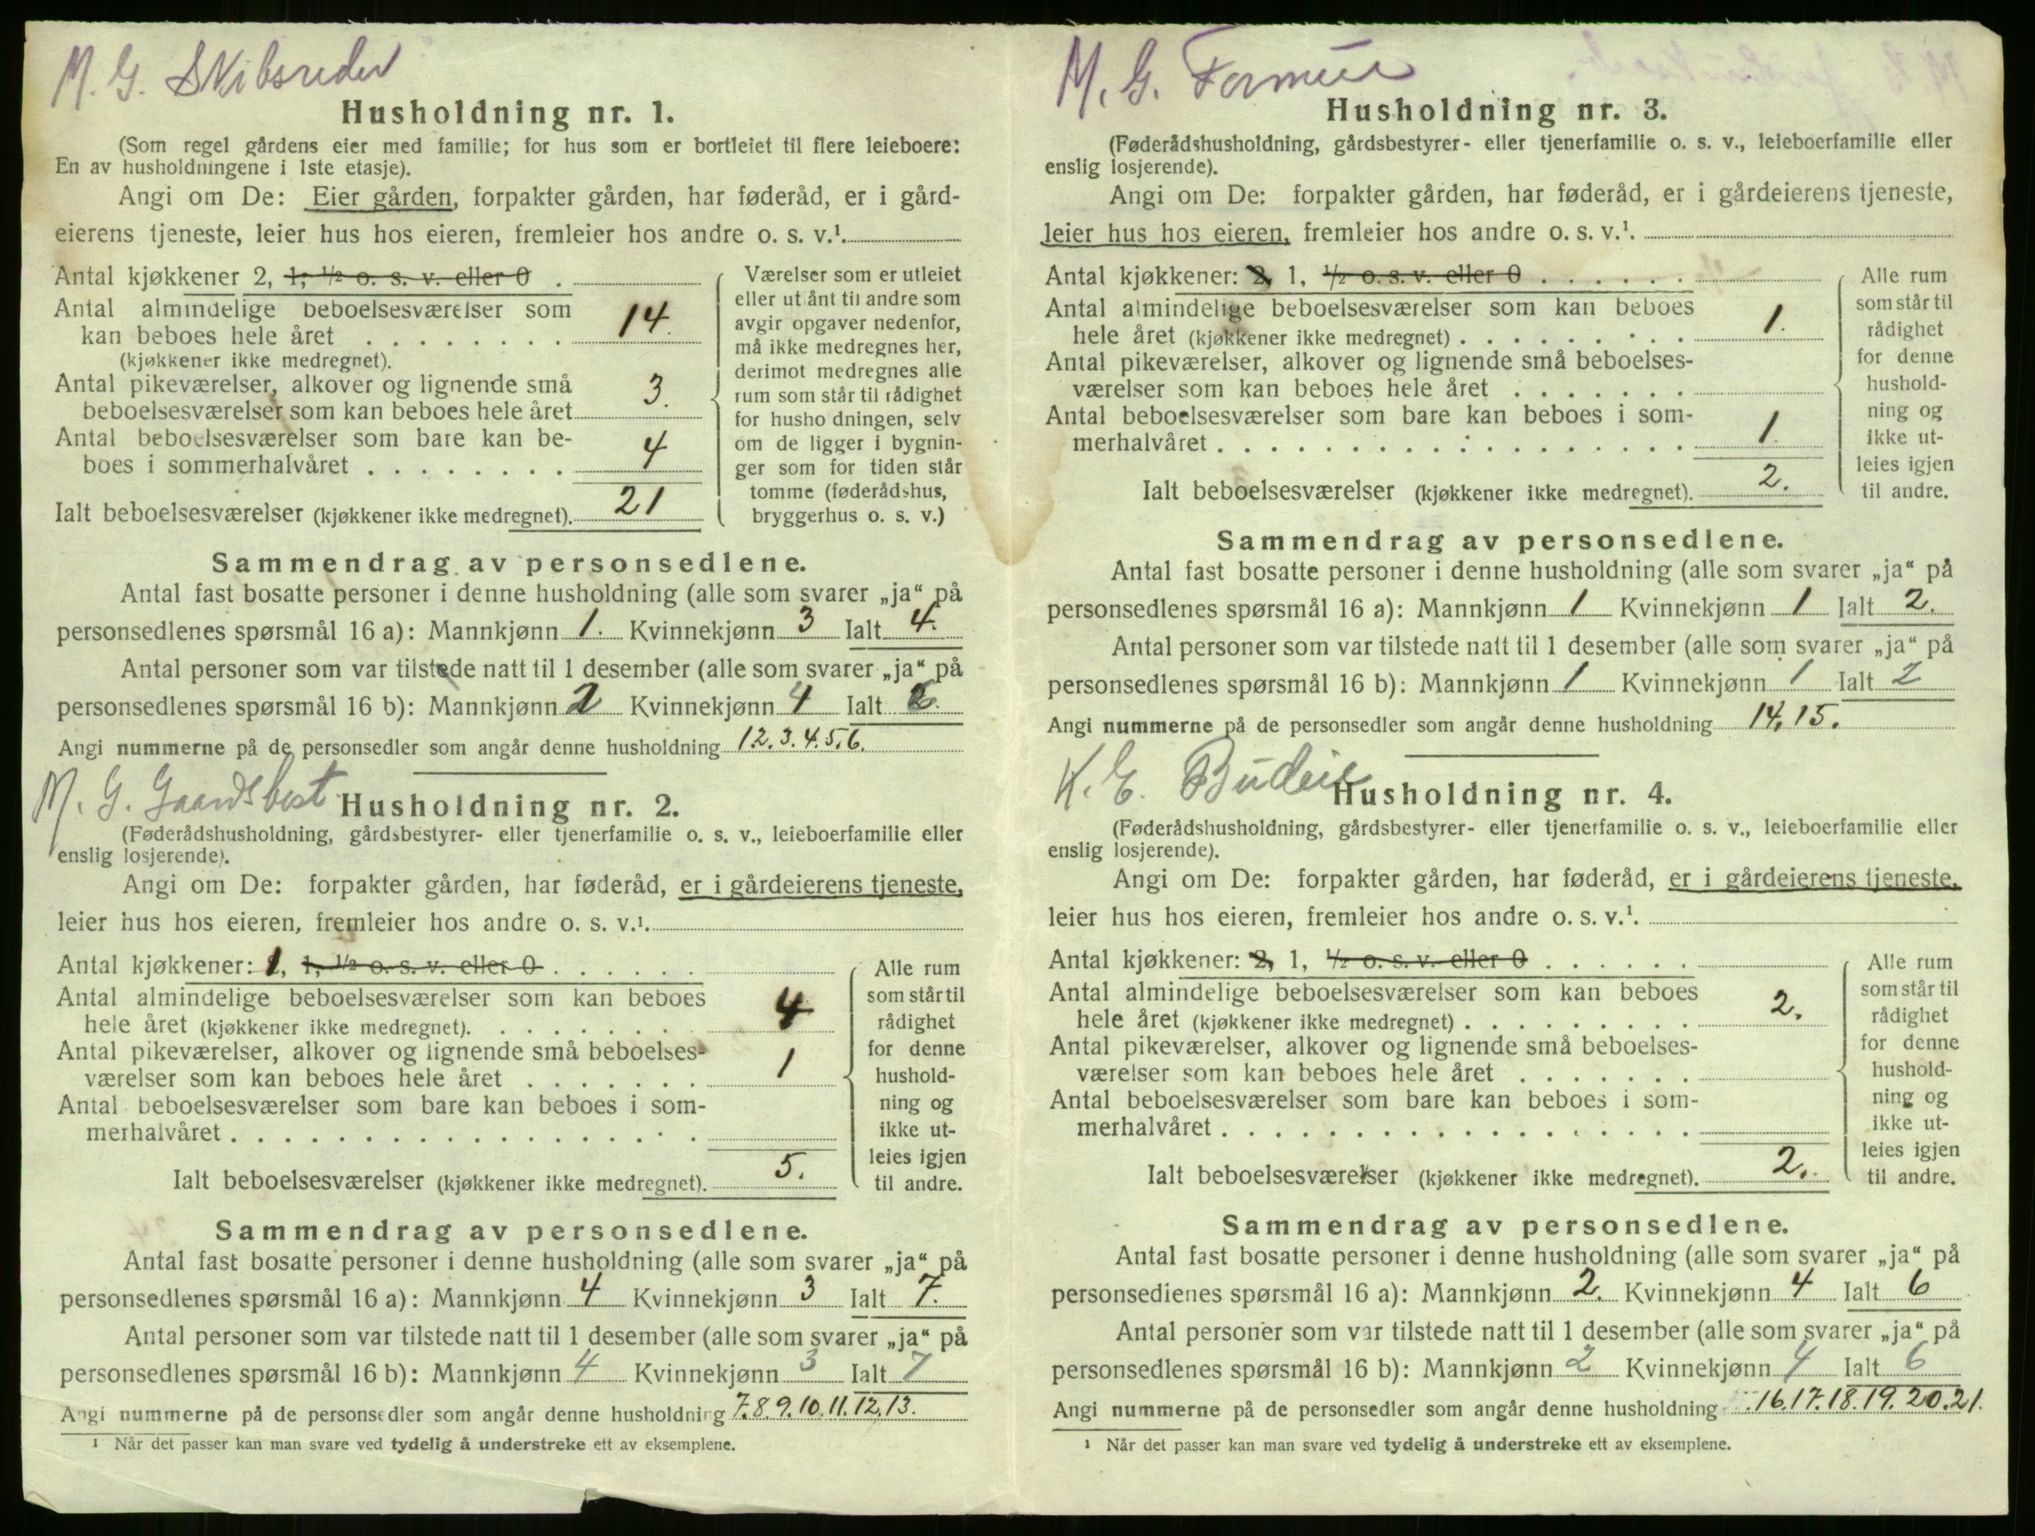 M. G. Skibsreder
Husholdning nr. 1.
(Som regel gårdens eier med familie; for hus som er bortleiet til flere leieboere:
En av husholdningene i 1ste etasje).
Angi om De: Eier gården, forpakter gården, har føderåd, er i gård-
eierens tjeneste, leier hus hos eieren, fremleier hos andre o. s. v.¹.
Antal kjøkkener 2, 1, ½ o. s. v. eller 0 .
Antal almindelige beboelsesværelser som
kan beboes hele året . . . . . . . . 14.
(kjøkkener ikke medregnet).
Antal pikeværelser, alkover og lignende små
beboelsesværelser som kan beboes hele året 3.
Antal beboelsesværelser som bare kan be-
boes i sommerhalvåret . . . . . . . . 4
Ialt beboelsesværelser (kjøkkener ikke medregnet). 21
Værelser som er utleiet
eller utlånt til andre som
avgir opgaver nedenfor,
må ikke medregnes her,
derimot medregnes alle
rum som står til rådighet
for husho dningen, selv
om de ligger i bygnin-
ger som for tiden står
tomme (føderådshus,
bryggerhus o. s. v.)
Sammendrag av personsedlene.
Antal fast bosatte personer i denne husholdning (alle som svarer „ja“ på
personsedlenes spørsmål 16 a): Mannkjønn 1. Kvinnekjønn 3 Ialt 4.
Antal personer som var tilstede natt til 1 desember (alle som svarer „ja“ på
personsedlenes spørsmål 16 b): Mannkjønn 2 Kvinnekjønn 4 Ialt 6.
Angi nummerne på de personsedler som angår denne husholdning 1.2.3.4.5.6.
M. G. Gaardsbest.
Husholdning nr. 2.
(Føderådshusholdning, gårdsbestyrer- eller tjenerfamilie o. s. v., leieboerfamilie eller
enslig losjerende).
Angi om De: forpakter gården, har føderåd, er i gårdeierens tjeneste,
leier hus hos eieren, fremleier hos andre o. s. v.¹.
Antal kjøkkener: 1, 1, ½ o. s. v. eller 0 . . . . . .
Antal almindelige beboelsesværelser som kan beboes
hele året (kjøkkener ikke medregnet). . . . . . . . . 4
Antal pikeværelser, alkover og lignende små beboelses-
værelser som kan beboes hele året . . . . . . . 1
Antal beboelsesværelser som bare kan beboes i som-
merhalvåret . . . . . . . . . . . . . . . . . .
Ialt beboelsesværelser (kjøkkener ikke medregnet). 5.
Alle rum
som står til
rådighet
for denne
hushold-
ning og
ikke ut-
leies igjen
til andre.
Sammendrag av personsedlene.
Antal fast bosatte personer i denne husholdning (alle som svarer „ja“ på
personsedlenes spørsmål 16 a): Mannkjønn 4 Kvinnekjønn 3 Ialt 7.
Antal personer som var tilstede natt til 1 desember (alle som svarer „ja“ på
personsedlenes spørsmål 16 b): Mannkjønn 4 Kvinnekjønn 3 Ialt 7
Angi nummerne på de personsedler som angår denne husholdning 7.8.9.10.11.12.13.
¹ Når det passer kan man svare ved tydelig å understreke ett av eksemplene.
M. G.
Husholdning nr. 3.
(Føderådshusholdning, gårdsbestyrer- eller tjenerfamilie o. s. v., leieboerfamilie eller
enslig losjerende).
Angi om De: forpakter gården, har føderåd, er i gårdeierens tjeneste,
leier hus hos eieren, fremleier hos andre o. s. v.¹.
Antal kjøkkener: 2, 1, ½ o. s. v. eller 0 . . . . . .
Antal almindelige beboelsesværelser som kan beboes
hele året (kjøkkener ikke medregnet) . . . . . . . . . 1.
Antal pikeværelser, alkover og lignende små beboelses-
værelser som kan beboes hele året . . . . . . .
Antal beboelsesværelser som bare kan beboes i som-
merhalvåret . . . . . . . . . . . . . . . . . . 1
Ialt beboelsesværelser (kjøkkener ikke medregnet). 2.
Alle rum
som står til
rådighet
for denne
hushold-
ning og
ikke ut-
leies igjen
til andre.
Sammendrag av personsedlene.
Antal fast bosatte personer i denne husholdning (alle som svarer „ja“ på
personsedlenes spørsmål 16 a): Mannkjønn 1 Kvinnekjønn 1 Ialt 2.
Antal personer som var tilstede natt til 1 desember (alle som svarer „ja“ på
personsedlenes spørsmål 16 b): Mannkjønn 1 Kvinnekjønn 1 Ialt 2
Angi nummerne på de personsedler som angår denne husholdning 14. 15.
K. E. Budeie
Husholdning nr. 4.
(Føderådshusholdning, gårdsbestyrer- eller tjenerfamilie o. s. v., leieboerfamilie eller
enslig losjerende).
Angi om De: forpakter gården, har føderåd, er i gårdeierens tjeneste,
leier hus hos eieren, fremleier hos andre o. s. v.¹.
Antal kjøkkener: 2, 1, ½ o. s. v. eller 0 . . . . . .
Antal almindelige beboelsesværelser som kan beboes
hele året (kjøkkener ikke medregnet) . . . . . . . . . 2.
Antal pikeværelser, alkover og lignende små beboelses-
værelser som kan beboes hele året . . . . . . .
Antal beboelsesværelser som bare kan beboes i som-
merhalvåret . . . . . . . . . . . . . . . . . .
Ialt beboelsesværelser (kjøkkener ikke medregnet). 2.
Alle rum
som står til
rådighet
for denne
hushold-
ning og
ikke ut-
leies igjen
til andre.
Sammendrag av personsedlene.
Antal fast bosatte personer i denne husholdning (alle som svarer „ja“ på
personsedlenes spørsmål 16 a): Mannkjønn 2. Kvinnekjønn 4 Ialt 6
Antal personer som var tilstede natt til 1 desember (alle som svarer „ja“ på
personsedlenes spørsmål 16 b): Mannkjønn 2 Kvinnekjønn 4 Ialt 6
Angi nummerne på de personsedler som angår denne husholdning 16.17.18.19.20.21.
¹ Når det passer kan man svare ved tydelig å understreke ett av eksemplene.